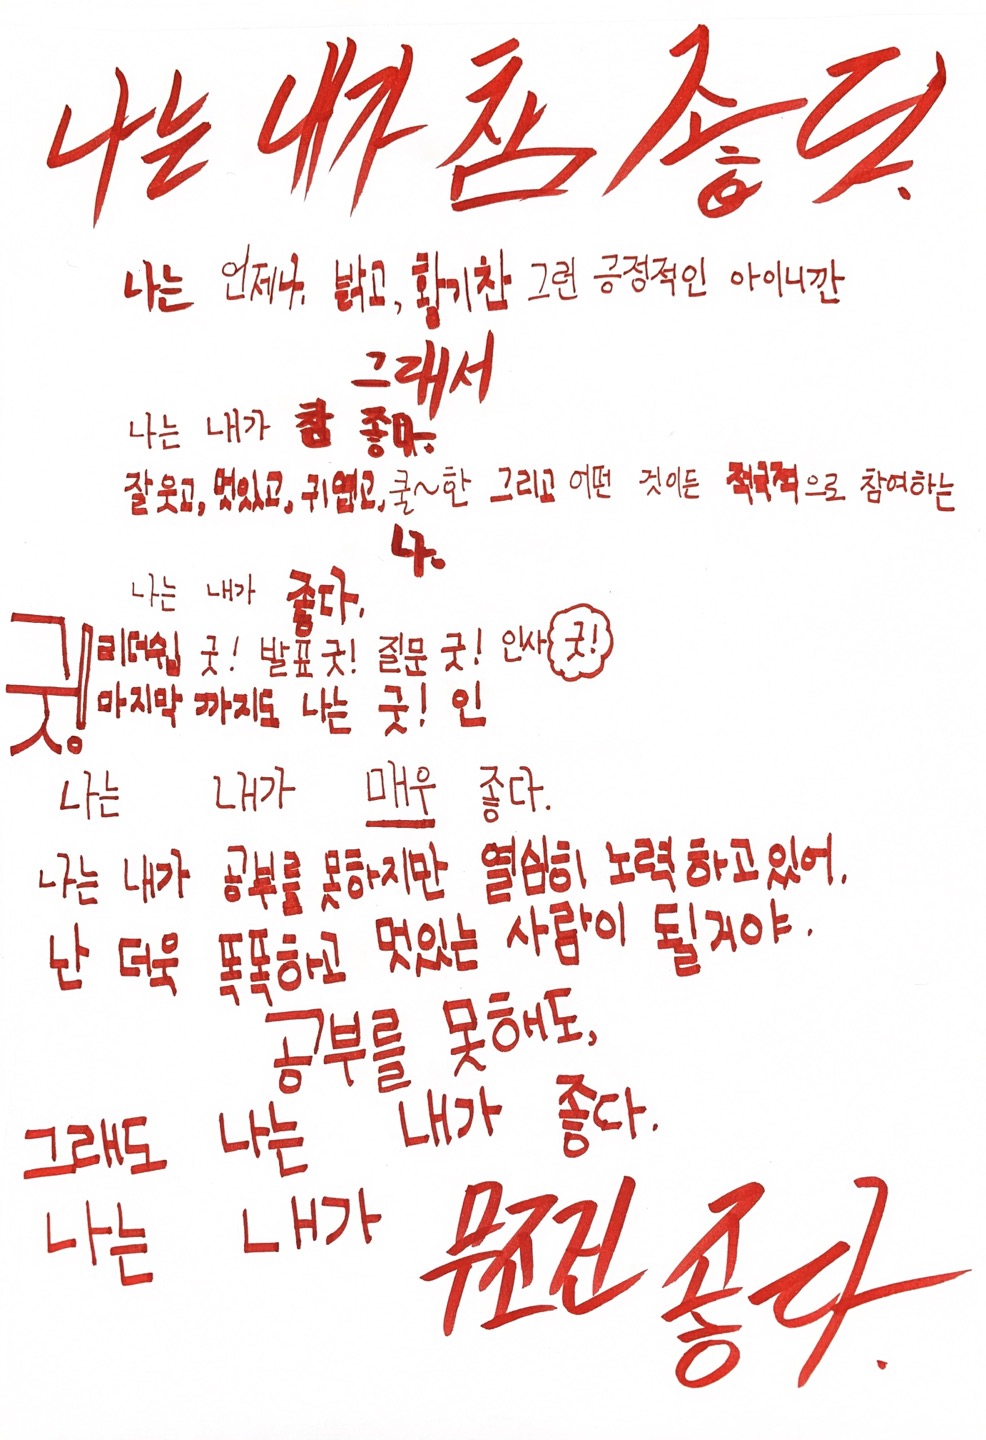 나는 내가 참 좋다.
나는 언제나, 밝고, 황기찬 그런 긍정적인 아이니깐
그래서
나는 내가 참 좋다.
잘웃고, 멋있고, 귀엽고, 쿨~한 그리고 어떤 것이든 적극적으로 참여하는
나.
나는 내가 좋다.
굿! 리더쉽 굿! 발표 굿! 질문 굿! 인사 굿!
마지막 까지도 나는 굿! 인
나는 내가 매우 좋다.
나는 내가 공부를 못하지만 열심히 노력하고있어.
난 더욱 똑똑하고 멋있는 사람이 될거야.
공부를 못해도,
그래도 나는 내가 좋다.
나는 내가 무조건 좋다.